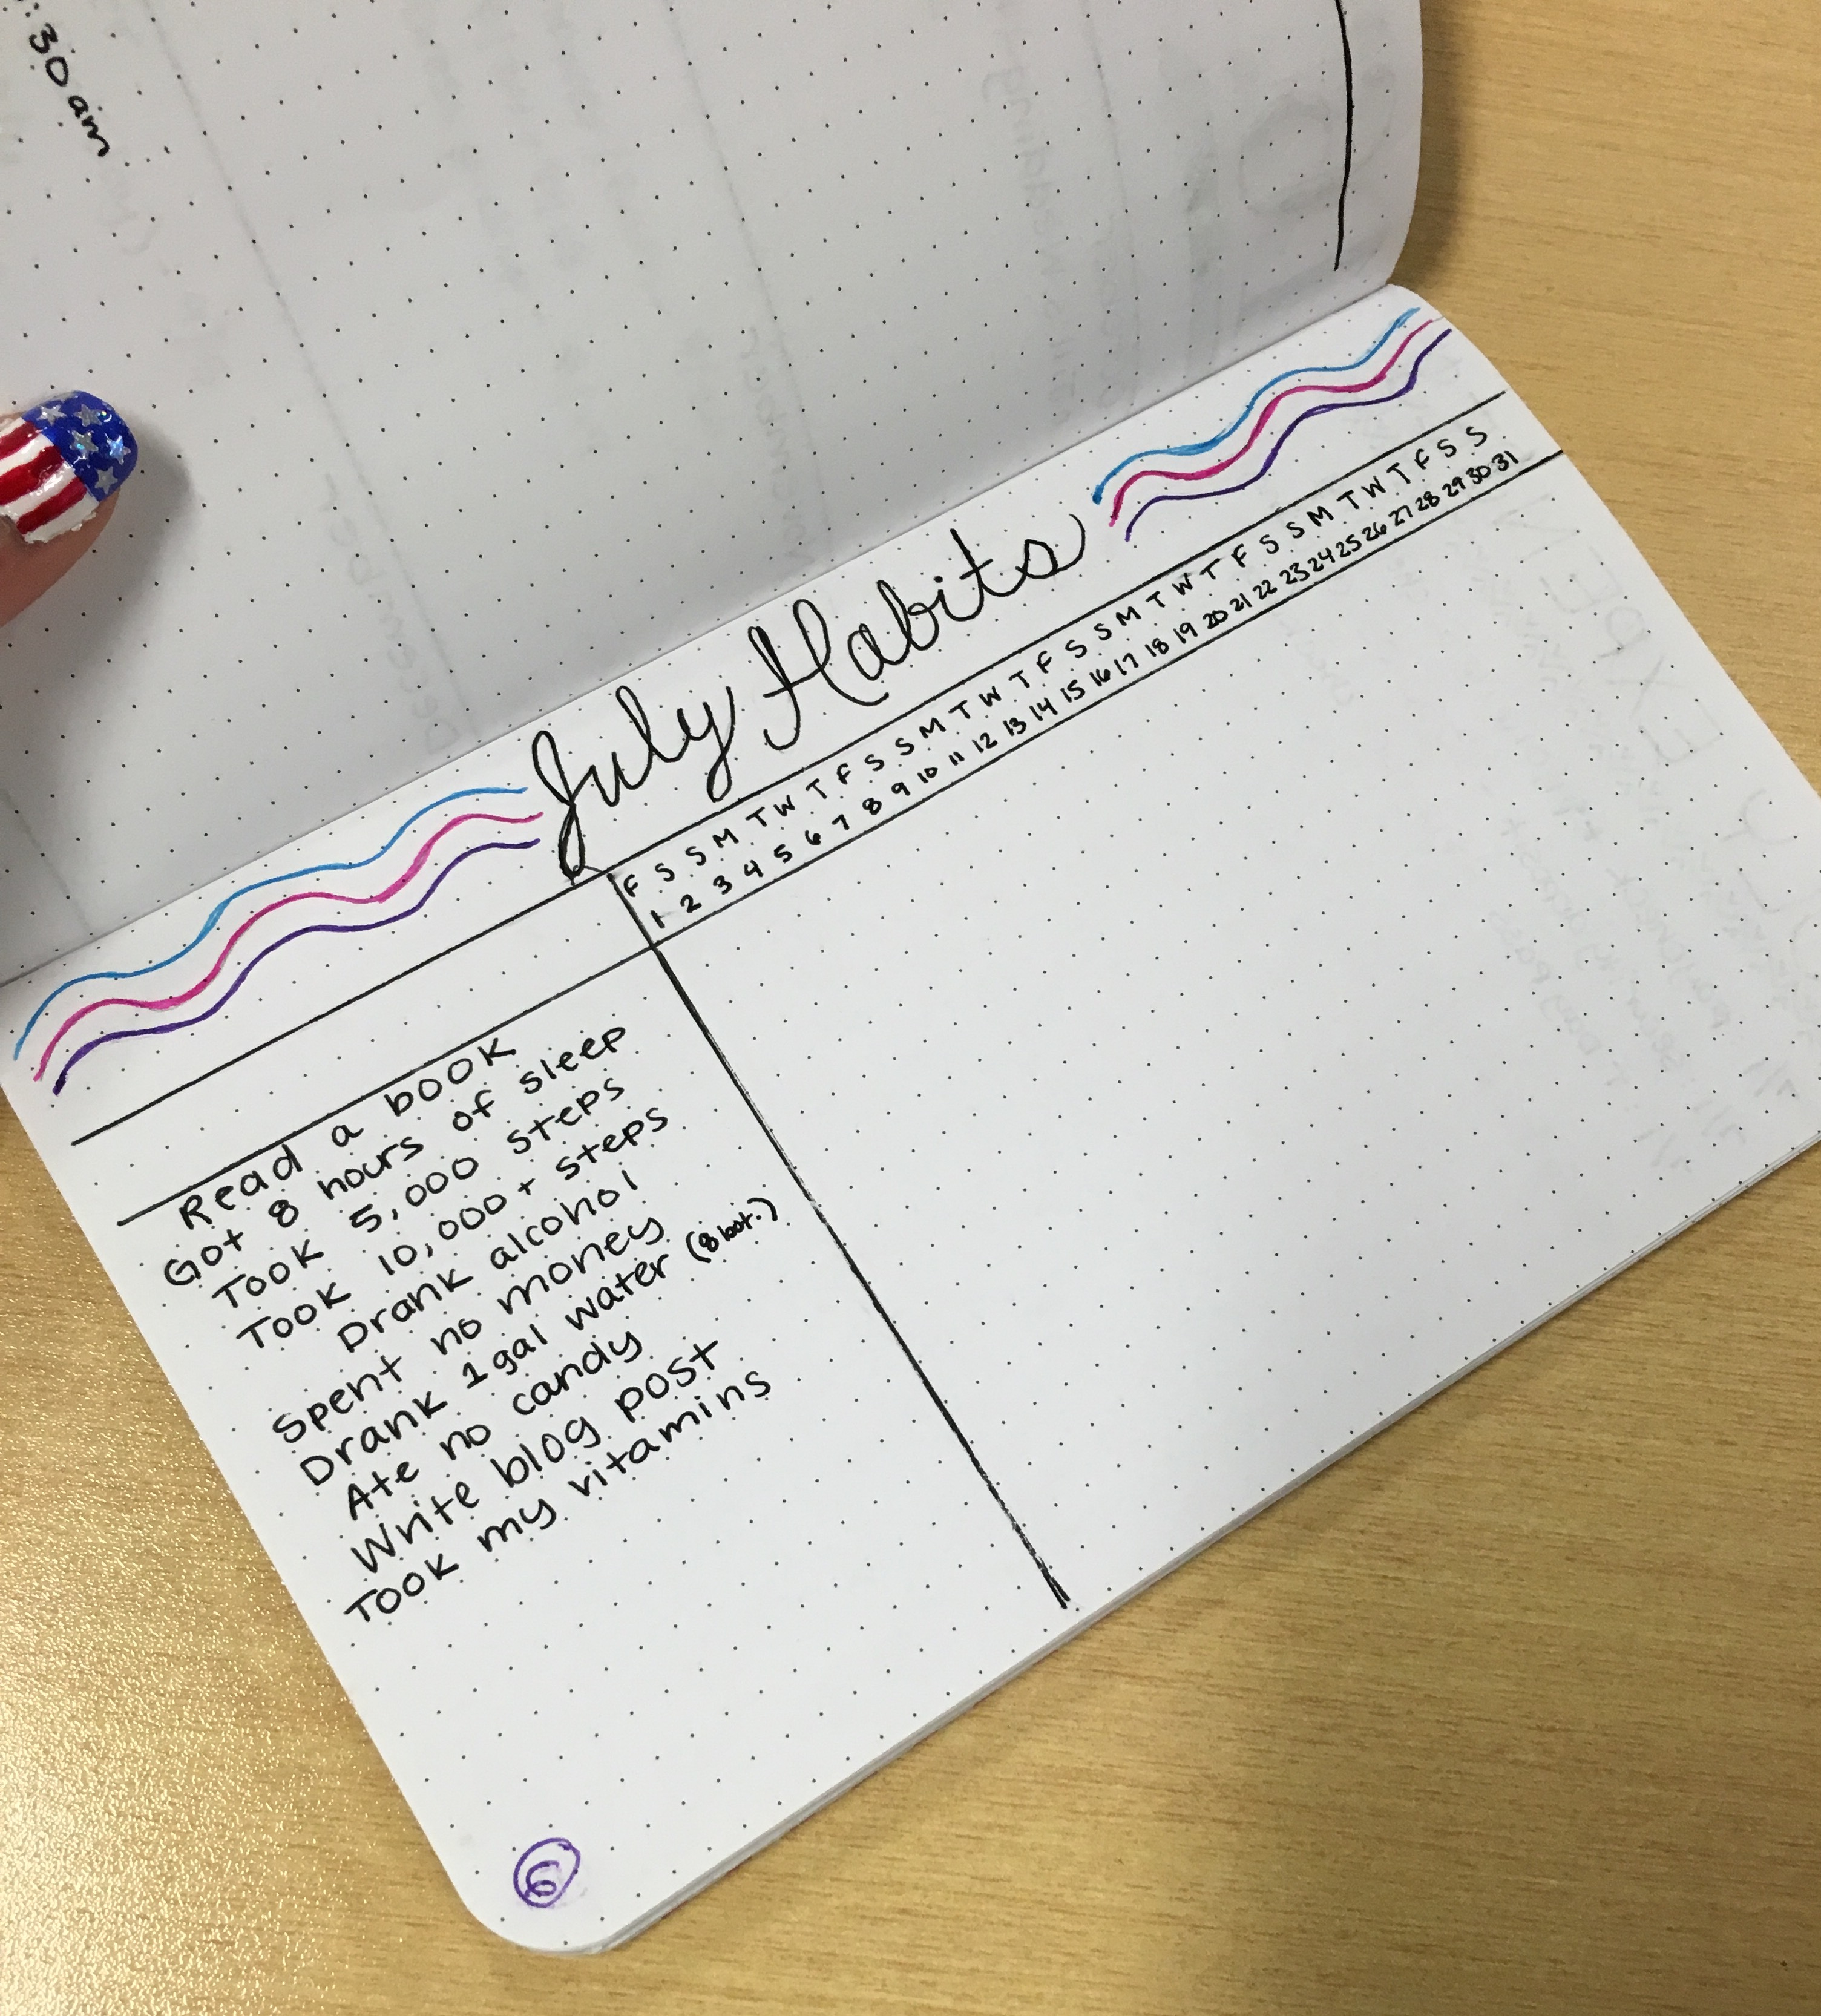 :30 am
July Habits
F S S M T W T F S S M T W T F S S M T W T F S S M T W T F S S
1 2 3 4 5 6 7 8 9 10 11 12 13 14 15 16 17 18 19 20 21 22 23 24 25 26 27 28 29 30 31
Read a book
Got 8 hours of sleep
Took 5,000 steps
Took 10,000+ steps
Drank alcohol
Spent no money
Drank 1 gal water (8 bot.)
Ate no candy
Write blog post
Took my vitamins
6